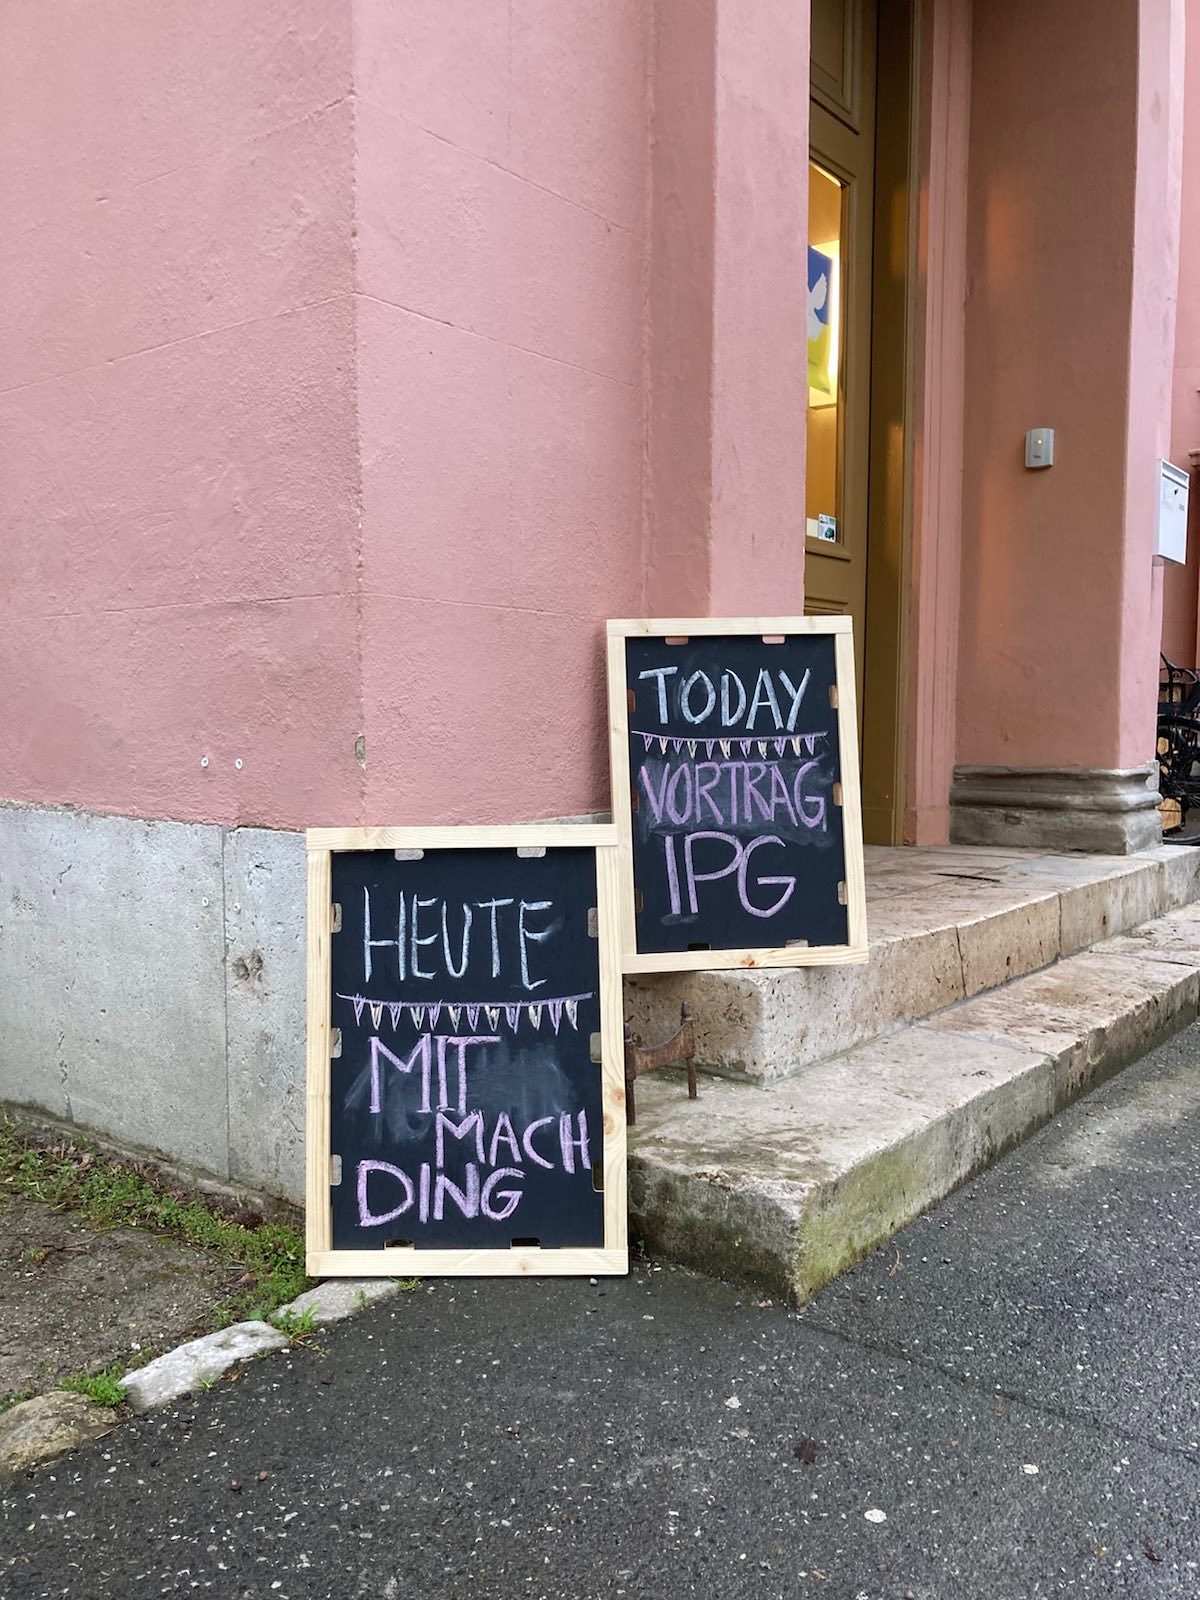 TODAY
VORTRAG
IPG
HEUTE
MIT
MACH
DING